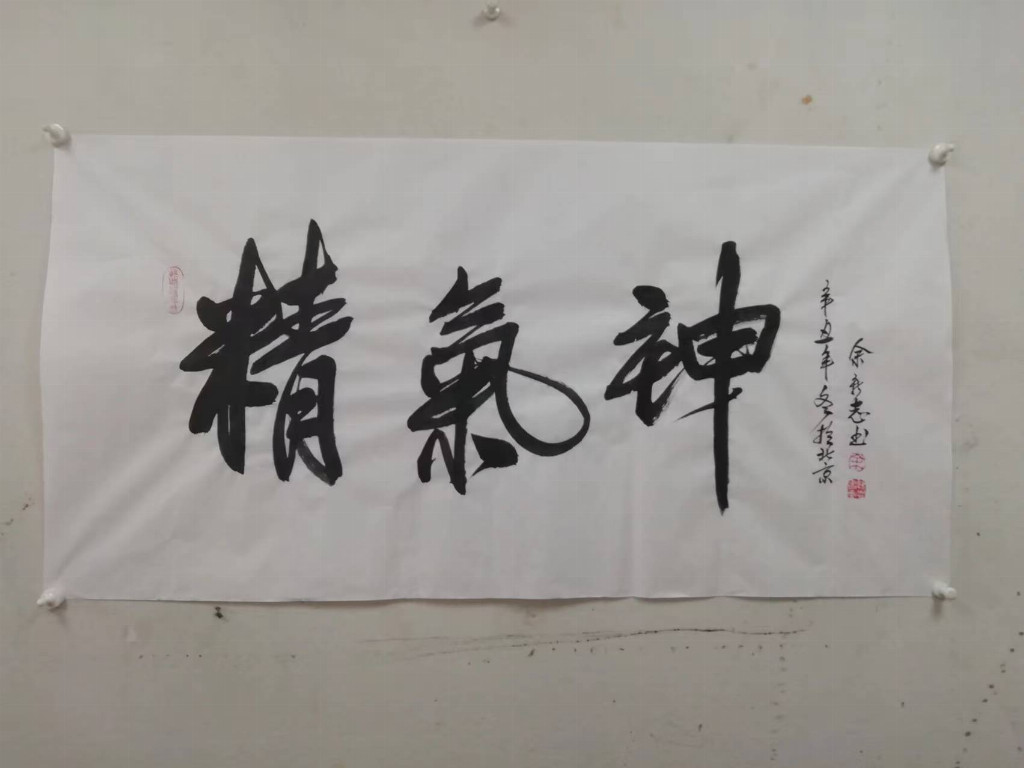 精氣神
辛丑年冬於北京
余新志书